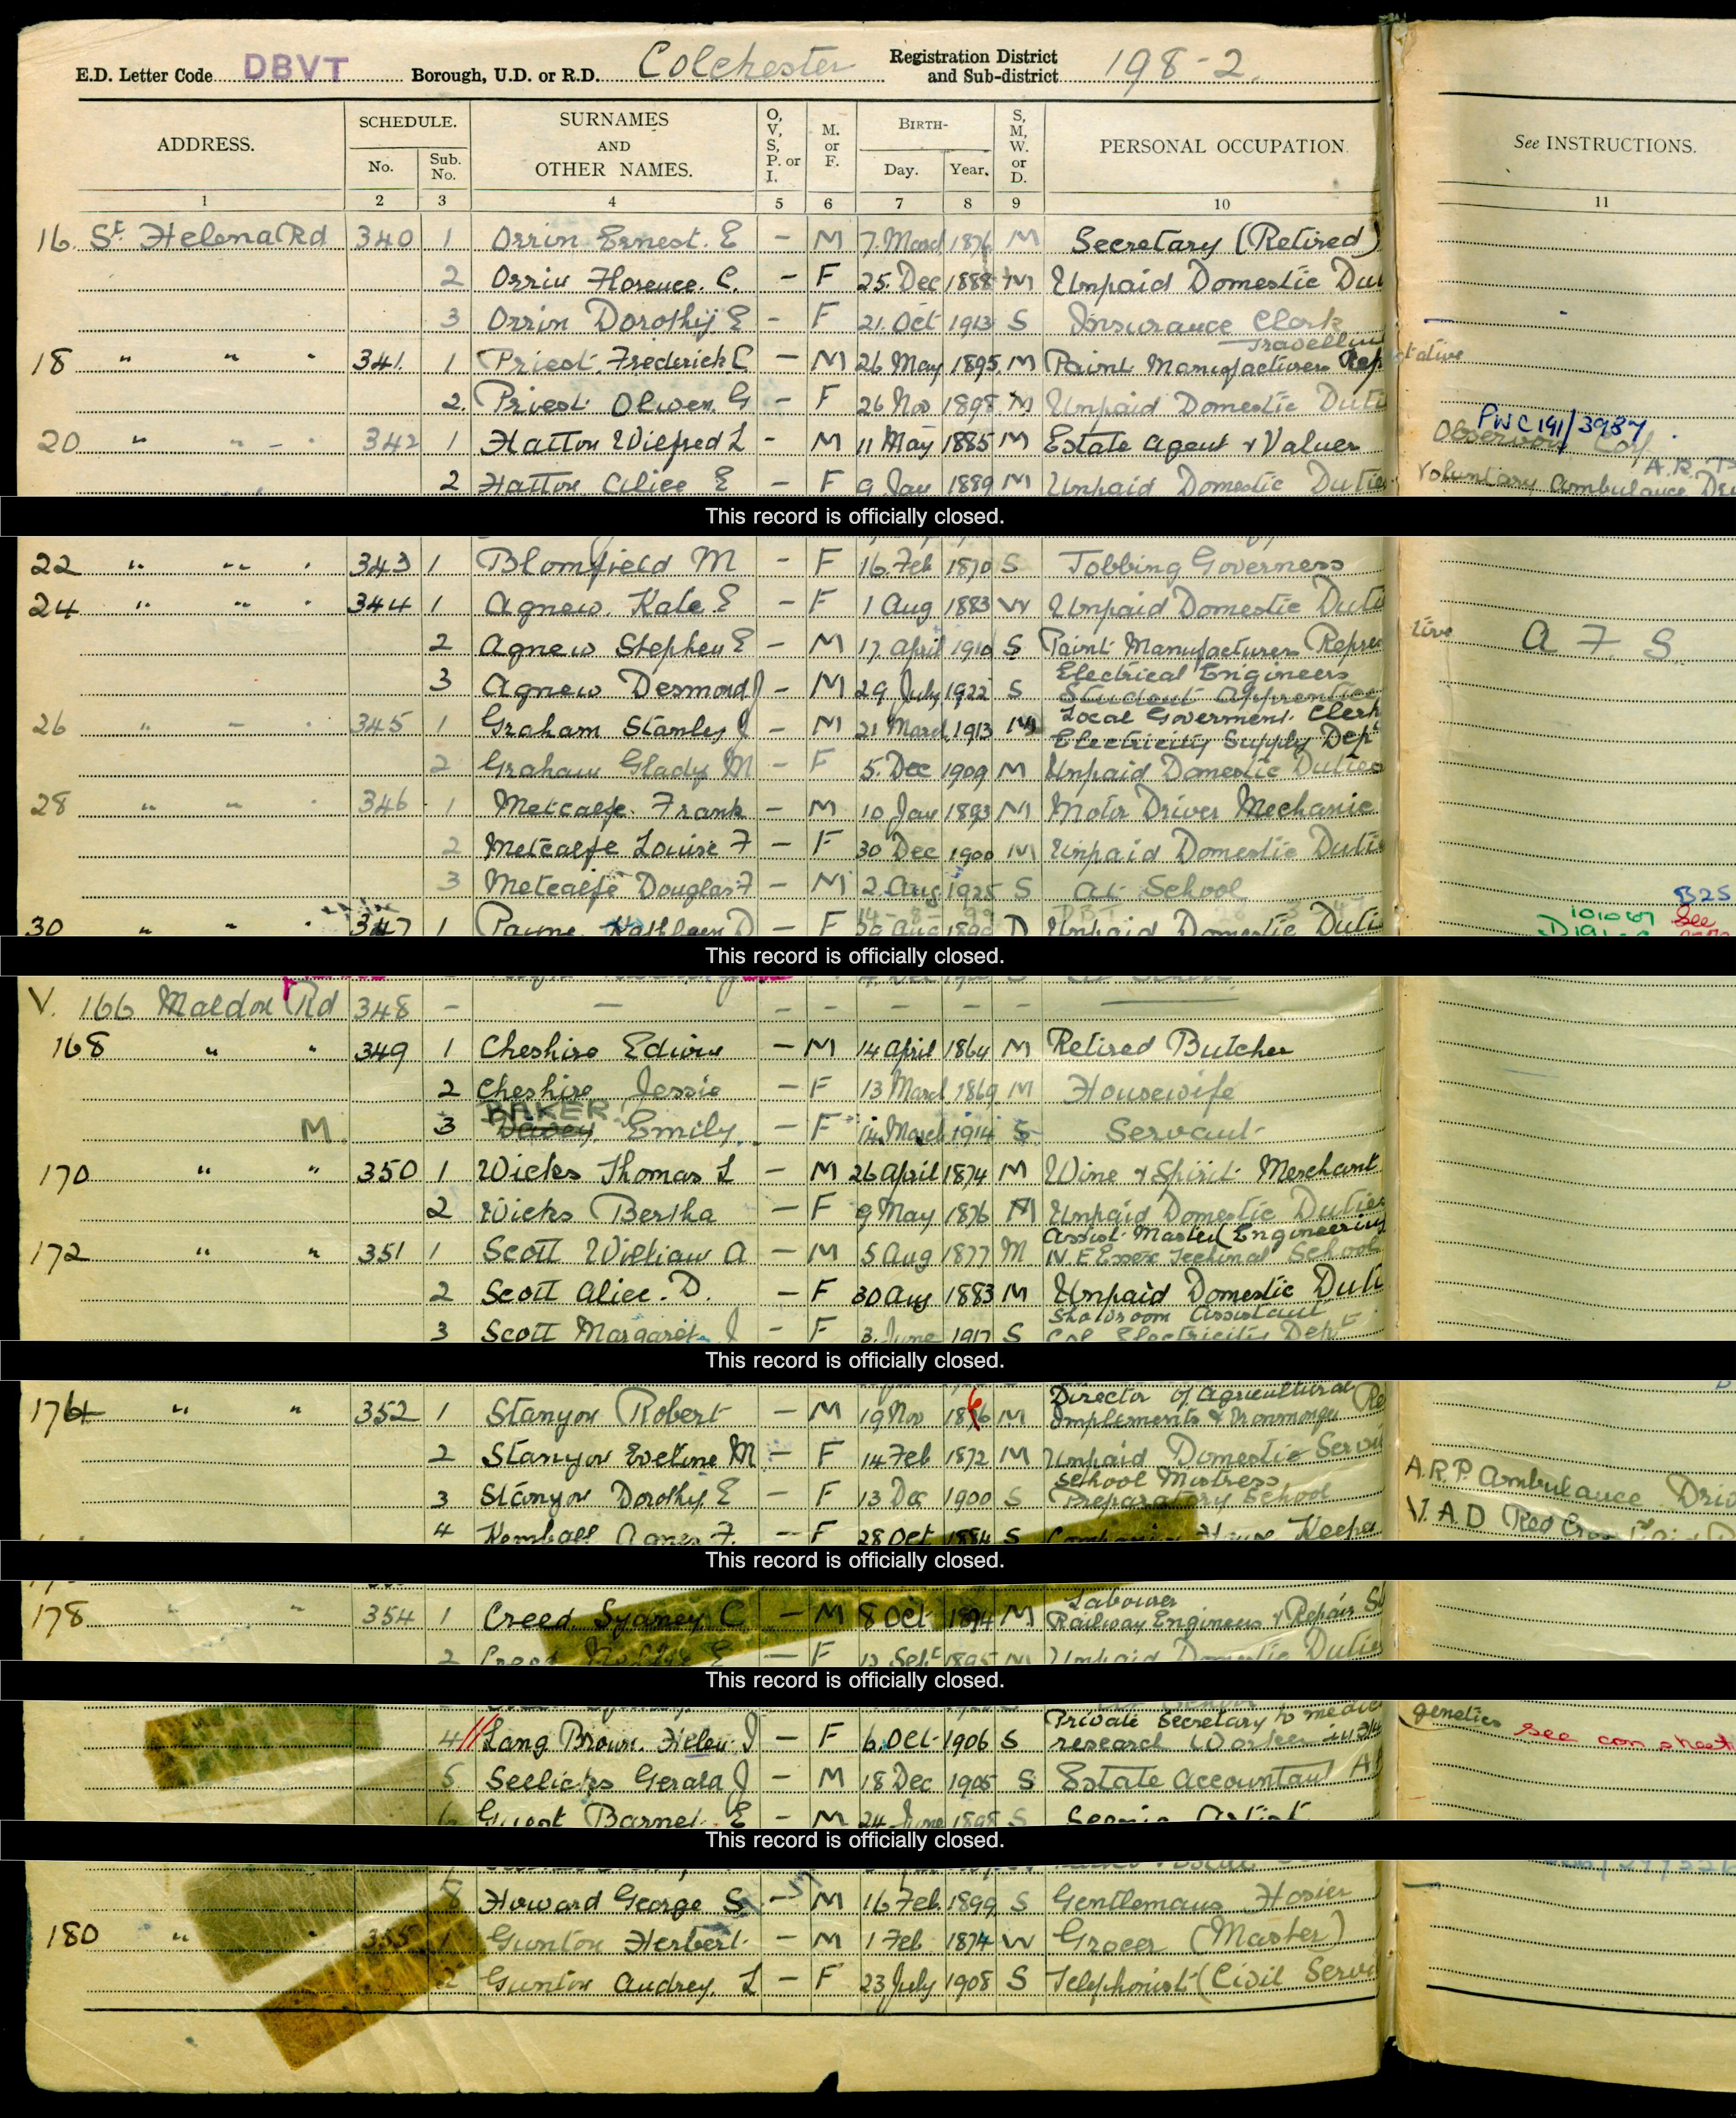 E.D. Letter Code DBVT Borough, U.D. or R.D. Colchester Registration District and Sub-district 198-2
ADDRESS. SCHEDULE. No. Sub. No. SURNAMES AND OTHER NAMES. O, V, S, P. or I. M. or F. BIRTH- Day. Year. S, M, W. or D. PERSONAL OCCUPATION See INSTRUCTIONS.
1 2 3 4 5 6 7 8 9 10 11
16 St Helena Rd 340 1 Orrin Ernest. E - M 7 March 1876 M Secretary (Retired)
2 Orrin Florence. C. - F 25 Dec 1888 M Unpaid Domestic Duti
3 Orrin Dorothy E - F 21 Oct 1913 S Insurance Clerk
Travelling
18 " " " 341 1 Priest Frederick C - M 26 May 1895 M Paint Manufacturers Rep
2 Priest Olwen. G - F 26 Nov 1898 M Unpaid Domestic Duti
PWC191/3987
20 " " " 342 1 Hatton Wilfred L - M 11 May 1885 M Estate Agent & Valuer Observer
2 Hatton Alice E - F 9 Jan 1889 M Unpaid Domestic Duties Voluntary Ambulance
This record is officially closed.
22 " " " 343 1 Blomfield M - F 16 Feb 1870 S Jobbing Governess
24 " " " 344 1 Agnew. Kate E - F 1 Aug 1883 W Unpaid Domestic Duti
2 Agnew Stephen E - M 17 April 1910 S Paint Manufacturers Represen tive A F S
Electrical Engineers
3 Agnew Desmond J - M 29 July 1922 S Student Apprentice
Local Goverment Clerk
26 " " " 345 1 Graham Stanley J - M 21 March 1913 M Electricity Supply Dept
2 Graham Glady M - F 5 Dec 1909 M Unpaid Domestic Duties
28 " " " 346 1 Metcalfe. Frank - M 10 Jan 1893 M Motor Driver Mechanic
2 Metcalfe Louise F - F 30 Dec 1900 M Unpaid Domestic Duti
3 Metcalfe Douglas F - M 2 Aug 1925 S At School
B25
30 " " " 347 1 Payne Kathleen D - F D Unpaid Domestic Duti See
This record is officially closed.
V. 166 Maldon Rd 348 - - - - - - -
168 " " 349 1 Cheshire Edwin - M 14 April 1864 M Retired Butcher
2 Cheshire Jessie - F 13 March 1869 M Housewife
BAKER
M 3 Davey Emily - F 14 March 1914 S Servant
170 " " 350 1 Wicks Thomas L - M 26 April 1874 M Wine & Spirit Merchant
2 Wicks Bertha - F 9 May 1876 M Unpaid Domestic Duties
Assist. Master (Engineering
172 " " 351 1 Scott William A - M 5 Aug 1877 M N.E Essex Techinal School
2 Scott Alice. D. - F 30 Aug 1883 M Unpaid Domestic Duti
Showroom Assistant
3 Scott Margaret J - F 3 June 1917 S Col Electricity Dept
This record is officially closed.
Director of Agricultural
174 " " 352 1 Stanyon Robert - M 19 Nov M Implements & Ironmonger
2 Stanyon Eveline M - F 14 Feb 1872 M Unpaid Domestic
School Mistress
3 Stanyon Dorothy E - F 13 Dec 1900 S Preparatory School A.R.P. Ambulance
4 Kemball Agnes F. - F 28 Oct 1884 S Companion House Keeper V.A.D Red Cross
This record is officially closed.
Labourer
178 " " 354 1 Creed Sydney C - M 8 Oct 1894 M Railway Engineers & Repair
2 Creed E - F 1895 M Unpaid Domestic Duties
This record is officially closed.
Private Secretary to medic genetics
4 Lang Brown. Helen. J - F 6 Oct 1906 S research Worker see con sheet
5 Sellicks Gerald J - M 18 Dec 1905 S Estate Accountant
6 Guest Barnet E - M 24 June 1898 S Scenic Artist
This record is officially closed.
8 Howard George S - M 16 Feb 1899 S Gentlemans Hosier
180 " " 355 1 Gunton Herbert - M 1 Feb 1874 W Grocer (Master)
2 Gunton Audrey. L - F 23 July 1908 S Telephonist (Civil Serva